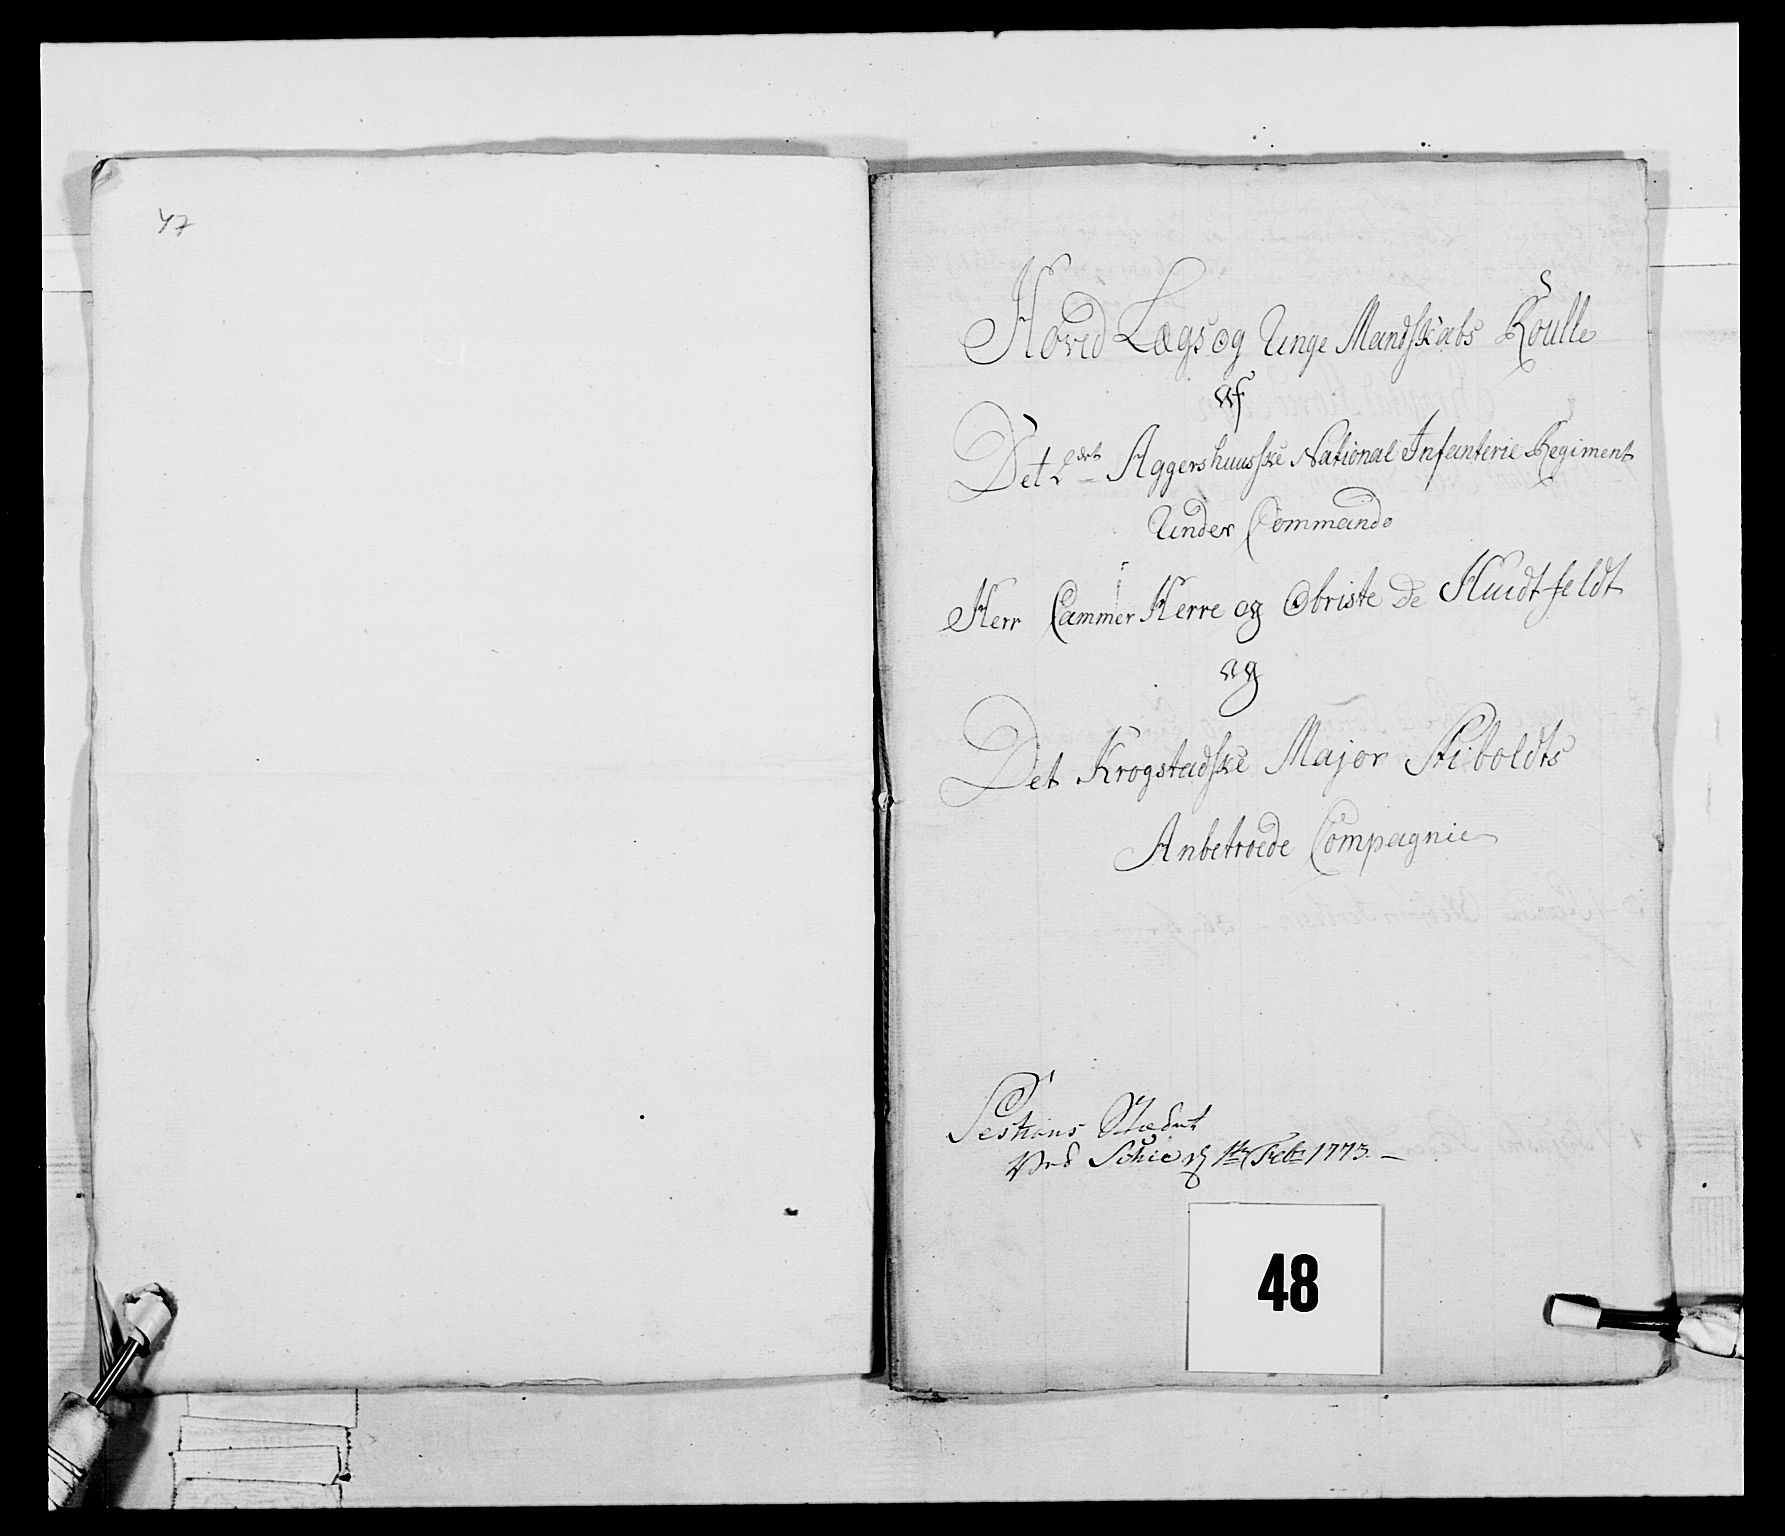 47
Hoved Lægs og Unge Mandskabs Roulle
af
Det 2det Aggershuusske National Infanterie Regiment
Under Commando
Herr Cammer Herre og Obriste de Huidtfeldt
og
Det Krogstadske Major Stiboldts
Anbetroede Compagnie
Sessions Stædet
Ved Schie d 1te Feb 1773.
48